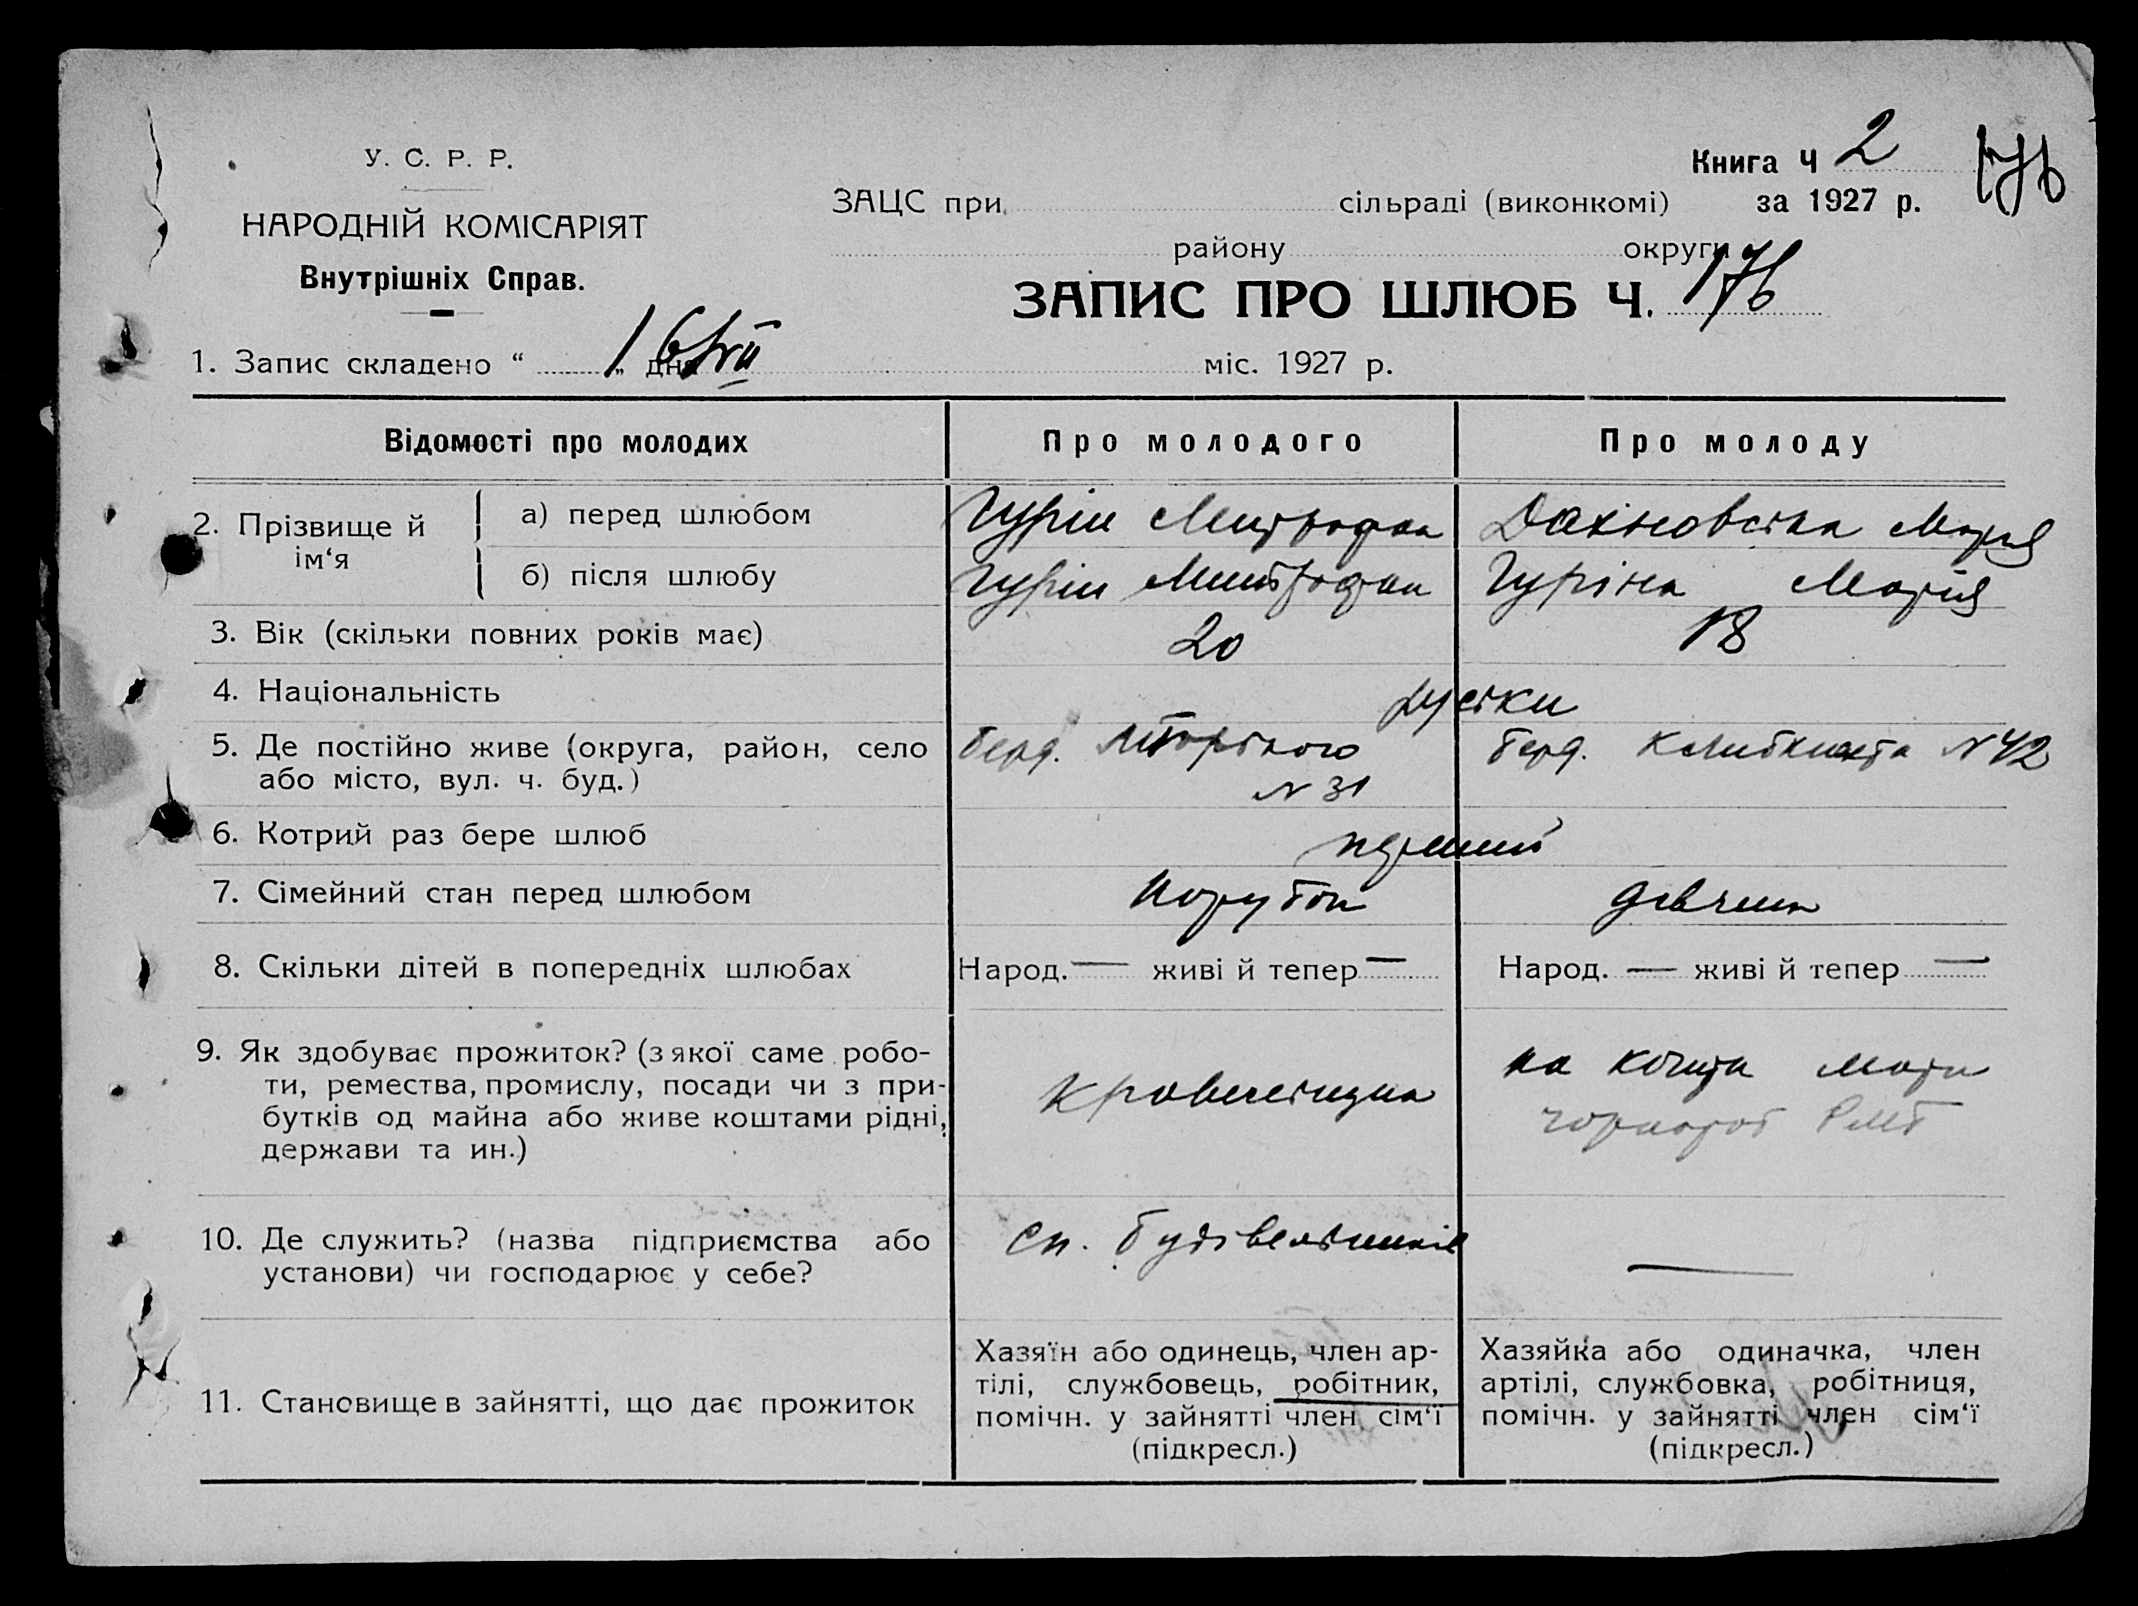 У. С. Р. Р.
НАРОДНІЙ КОМІСАРІЯТ
Внутрішніх Справ.
Книга Ч 2
за 1927 р.
176
ЗАЦС при сільраді (виконкомі)
району округи
ЗАПИС ПРО ШЛЮБ Ч. 176
1. Запис складено “ 16/VII „ дня міс. 1927 р.
Відомості про молодих Про молодого Про молоду
2. Прізвище й ім‘я
а) перед шлюбом Гурін Митрофан Дахновська Марія
б) після шлюбу Гурін Митрофан Гуріна Марія
3. Вік (скільки повних років має) 20 18
4. Національність руські
5. Де постійно живе (округа, район, село Берд. Берд. N 42
або місто, вул. ч. буд.) N 31
6. Котрий раз бере шлюб перший
7. Сімейний стан перед шлюбом парубок дівчина
8. Скільки дітей в попередніх шлюбах Народ. — живі й тепер — Народ. — живі й тепер —
9. Як здобуває прожиток? (з якої саме робо-
ти, ремества, промислу, посади чи з при-
бутків од майна або живе коштами рідні,
держави та ин.)
на кошти мати
10. Де служить? (назва підприємства або
установи) чи господарює у себе?
Сп. будівельників —
11. Становище в зайнятті, що дає прожиток
Хазяїн або одинець, член ар-
тілі, службовець, робітник,
помічн. у зайнятті член сім‘ї
(підкресл.)
Хазяйка або одиначка, член
артілі, службовка, робітниця,
помічн. у зайнятті член сім‘ї
(підкресл.)